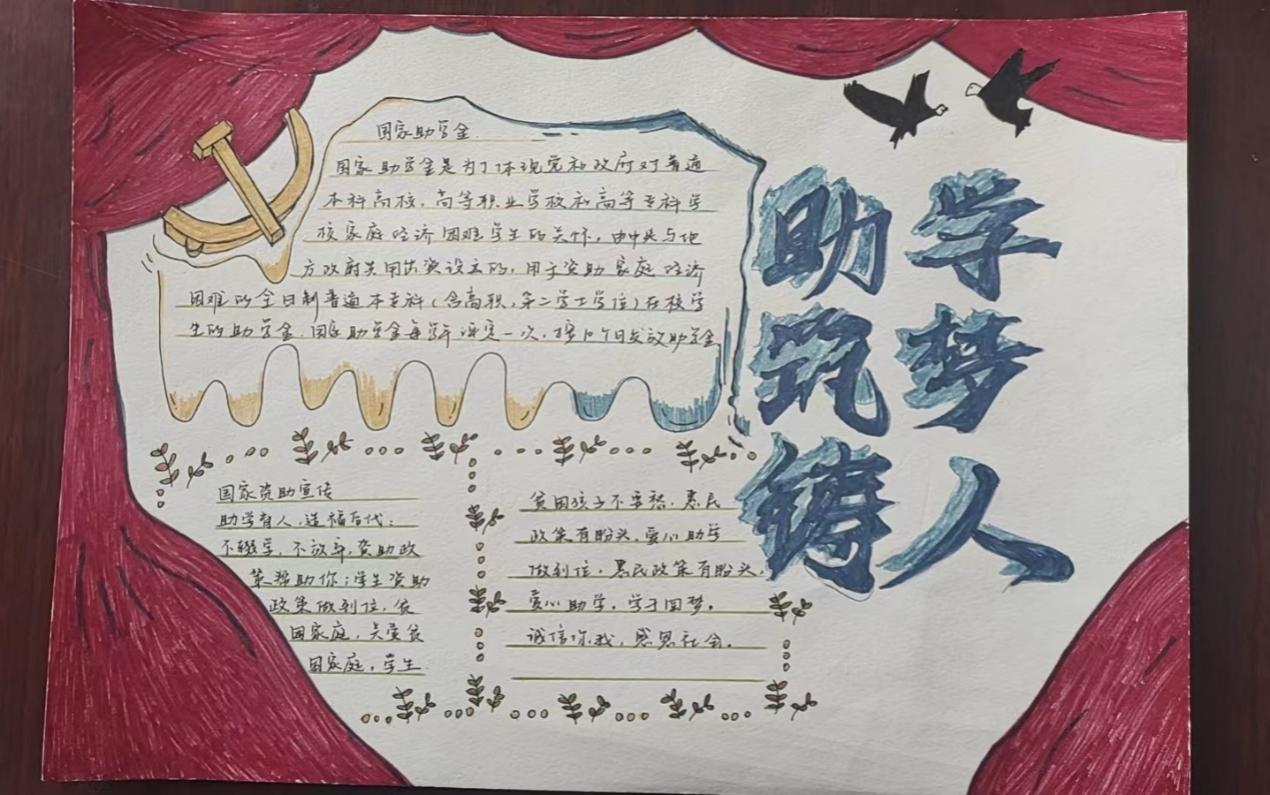 助学
筑梦
铸人
国家助学金.
国家助学金是为了体现党和政府对普通
本科高校，高等职业学校和高等专科学
校家庭经济困难学生的关怀，由中央与地
方政府共同出资设立的，用于资助家庭经济
困难的全日制普通本专科（含高职，第二学士学位）在校学
生的助学金.国家助学金每学年评定一次，按10个月发放助学金
国家资助宣传
助学育人，造福后代；
不辍学，不放弃，资助政
策帮助你；学生资助
政策做到位，贫
困家庭，贫
困家庭，学生
贫困孩子不要愁，惠民
政策有盼头，爱心助学
做到位，惠民政策有盼头，
爱心助学，学子圆梦。
诚信你我，感恩社会。